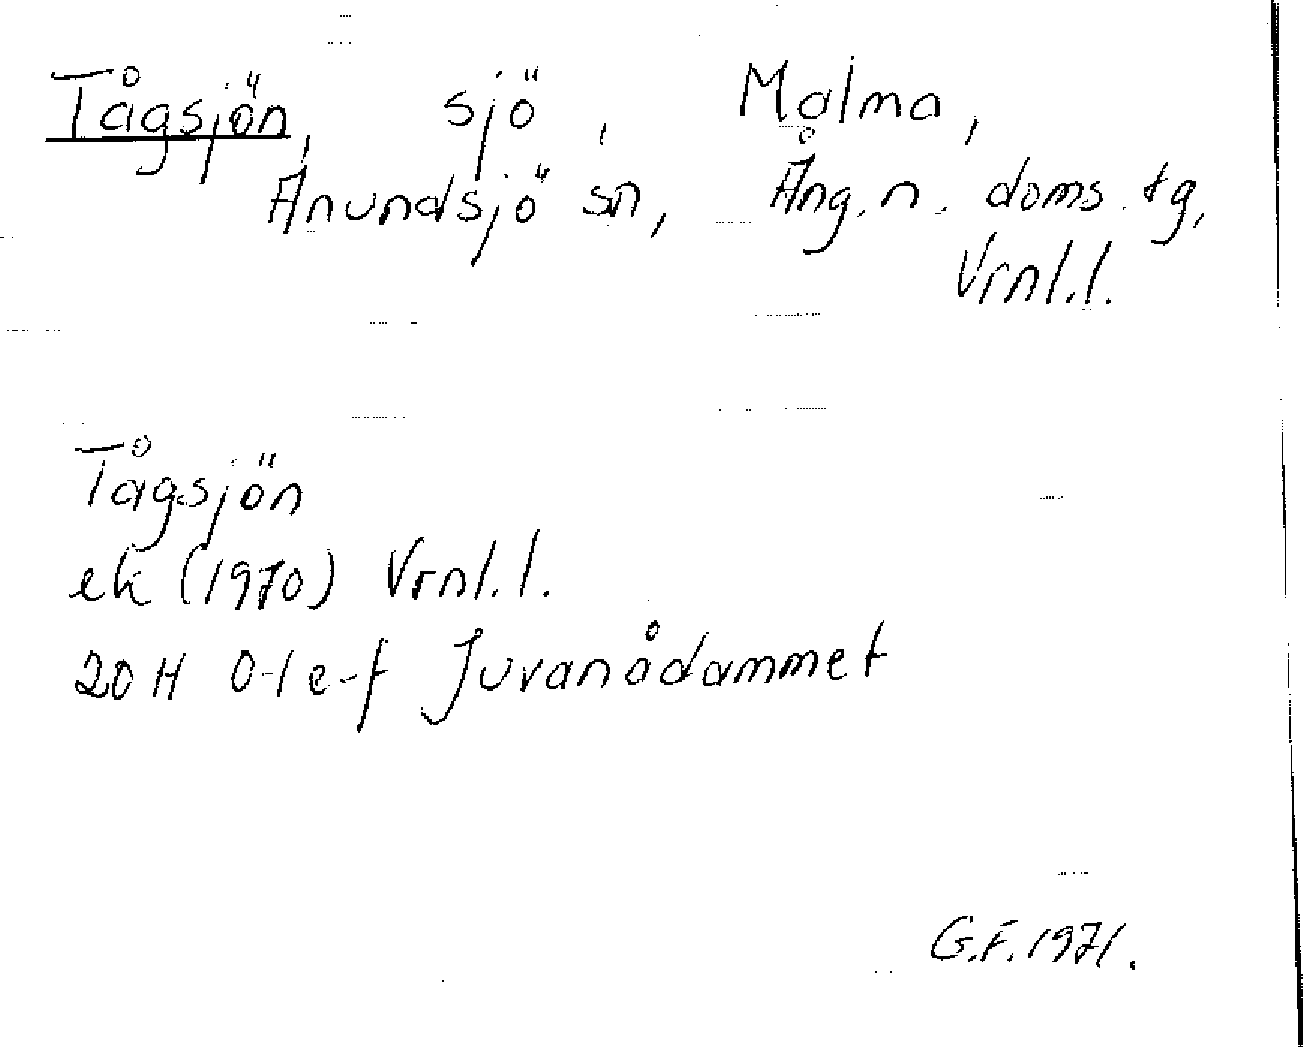 Tågsjön, sjö, Malma,
Anundsjö sn, Ång. n. doms. tg,
Vrnl.l.
Tågsjön
ek (1970) Vrnl.l.
20 H 0-1 e-f Juvanådammet
G.F. 1971.